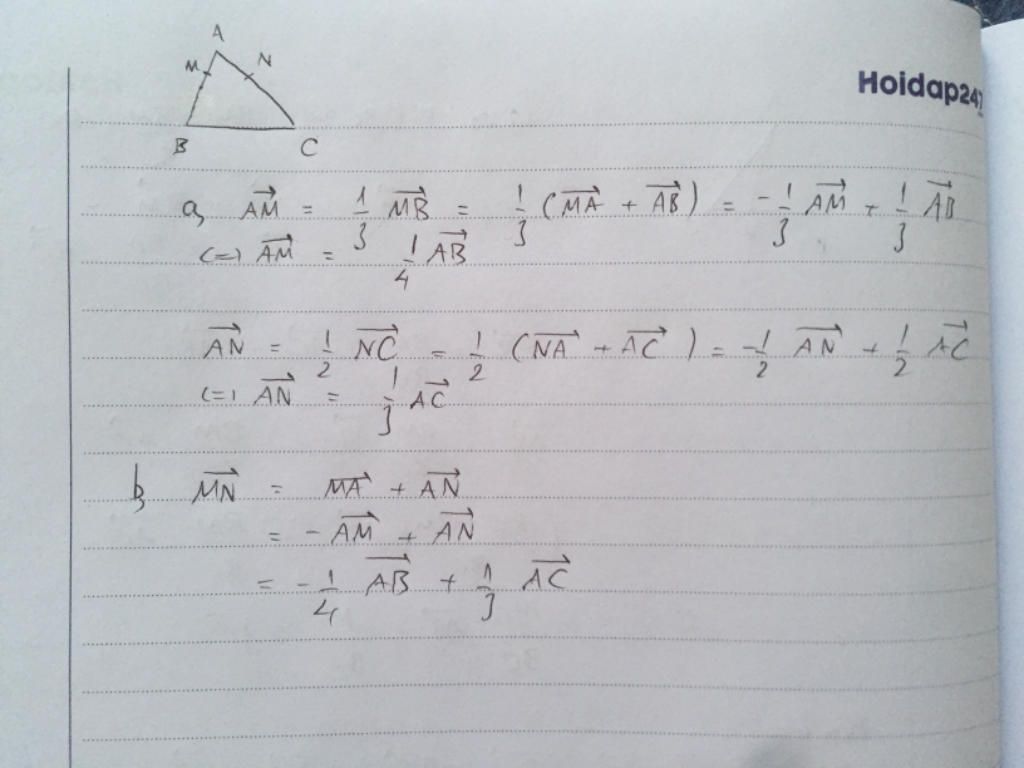 A
M N
Hoidap247
B C
a, AM⃗ = 1/3 MB⃗ = 1/3 (MA⃗ + AB⃗) = -1/3 AM⃗ + 1/3 AB⃗
(=) AM⃗ = 1/4 AB⃗
AN⃗ = 1/2 NC⃗ = 1/2 (NA⃗ + AC⃗) = -1/2 AN⃗ + 1/2 AC⃗
(=) AN⃗ = 1/3 AC⃗
b, MN⃗ = MA⃗ + AN⃗
= - AM⃗ + AN⃗
= - 1/4 AB⃗ + 1/3 AC⃗